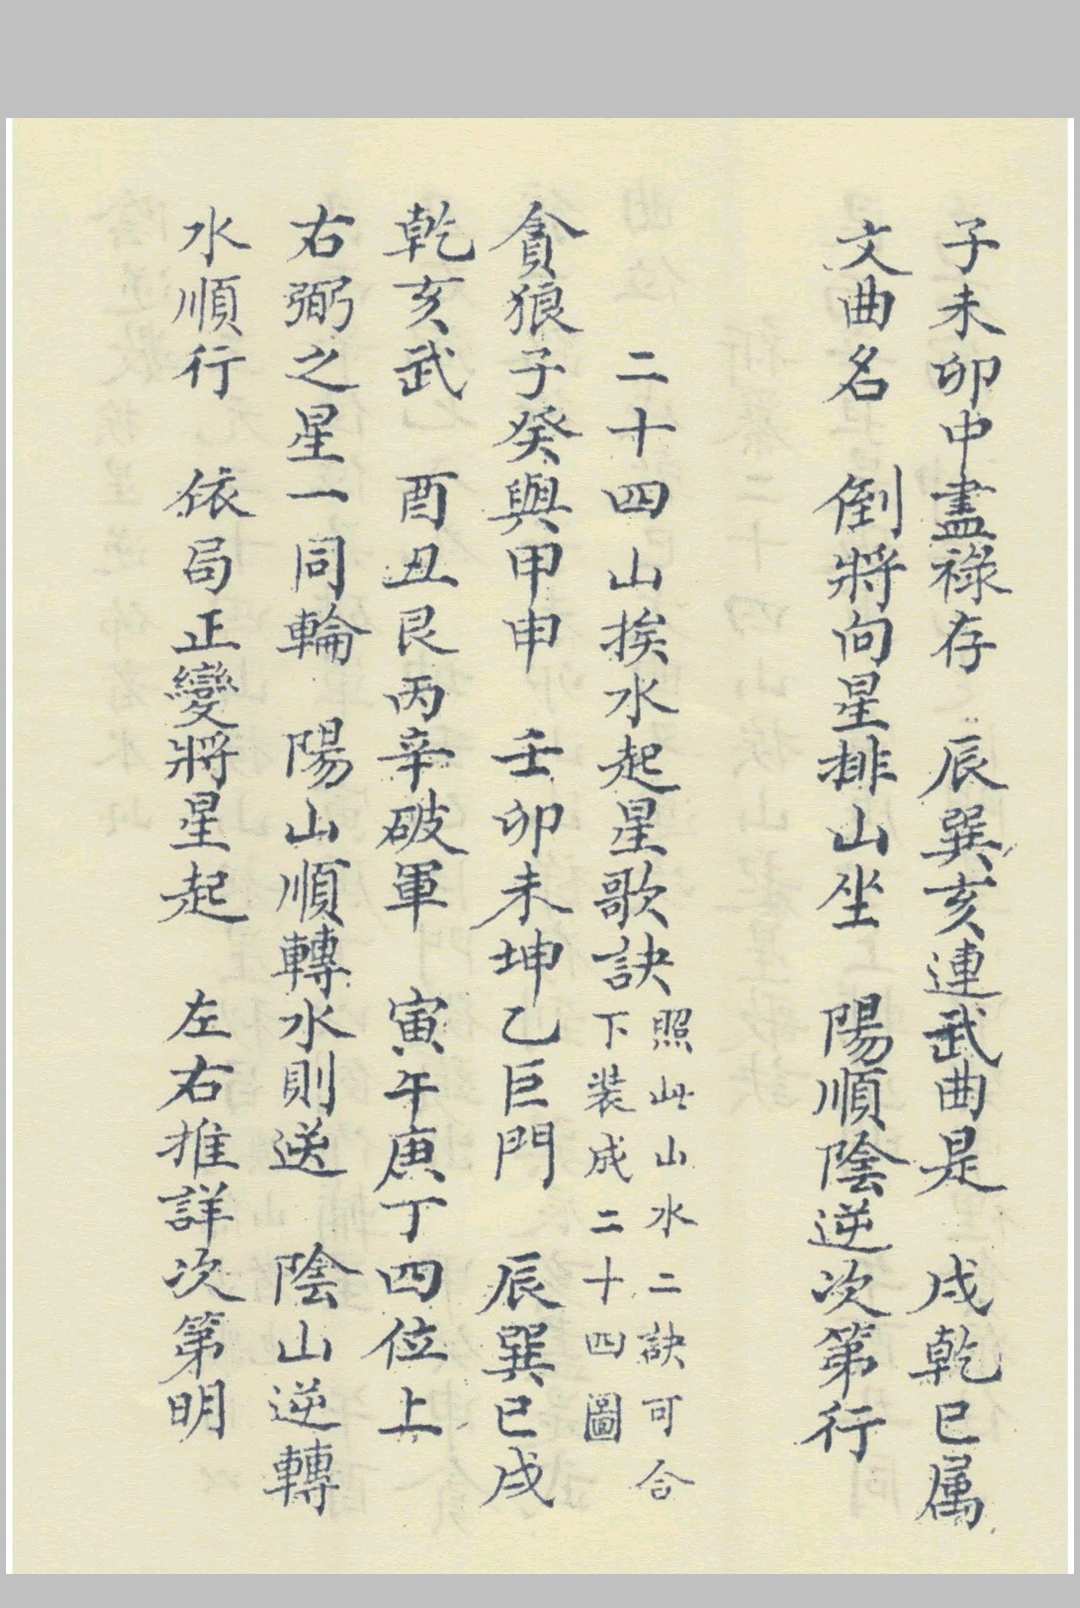 子未卯中盡祿存　辰巽亥連武曲是　戌乾巳属
文曲名　倒將向星排山坐　陽順陰逆次第行
二十四山挨水起星歌訣
照此山水二訣可合
下装成二十四圖
貪狼子癸與甲申　壬卯未坤乙巨門　辰巽巳戌
乾亥武　酉丑艮丙辛破軍　寅午庚丁四位上
右弼之星一同輪　陽山順轉水則逆　陰山逆轉
水順行　依局正變將星起　左右推詳次第明